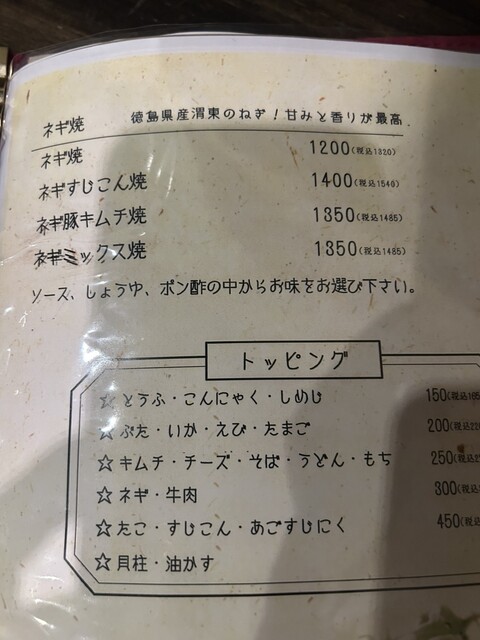 ネギ焼 徳島県産渭東のねぎ！甘みと香りが最高
ネギ焼 1200(税込1320)
ネギすじこん焼 1400(税込1540)
ネギ豚キムチ焼 1350(税込1485)
ネギミックス焼 1350(税込1485)
ソース、しょうゆ、ポン酢の中からお味をお選び下さい。
トッピング
☆とうふ・こんにゃく・しめじ 150(税込165
☆ぶた・いか・えび・たまご 200(税込220
☆キムチ・チーズ・そば・うどん・もち 250(税込2
☆ネギ・牛肉 300(税込
☆たこ・すじこん・あごすじにく 450(税込
☆貝柱・油かす